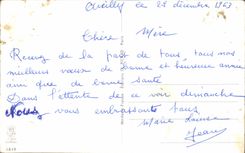 le 28 décembre 1963
Chère Mère
Recevez de la part de tous, tous nos
meilleurs vœux de bonne et heureuse année
ainsi que de bonne santé
Dans l'attente de ce voir dimanche
nous vous embrassons tous
Marie Louise
Jean